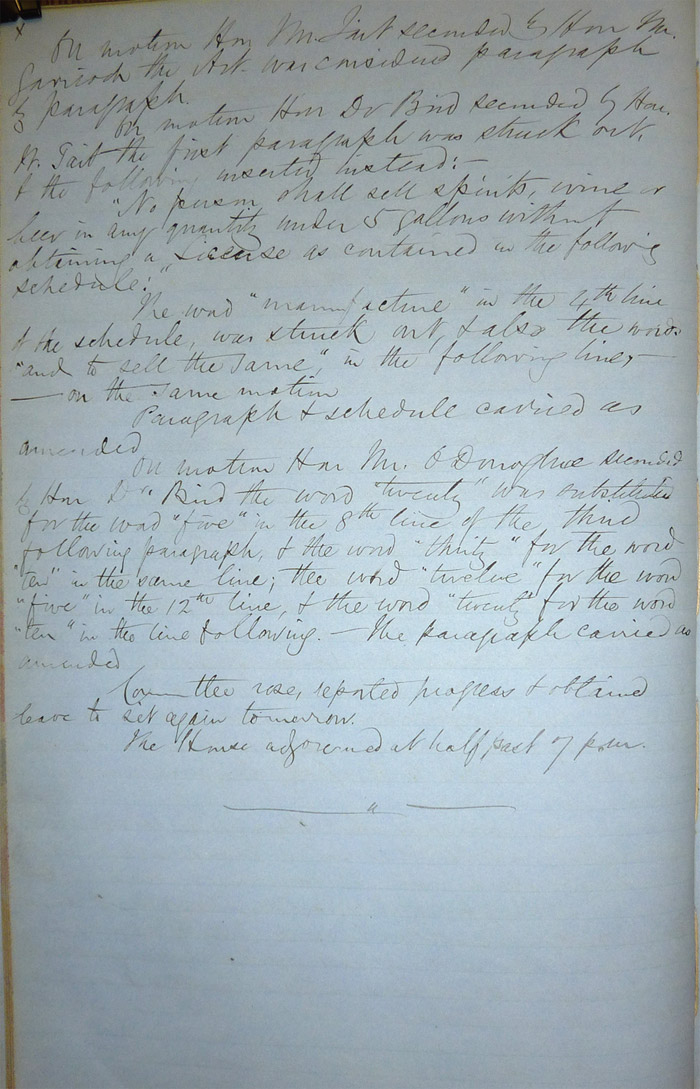 x
On motion Hon Mr. Tait seconded by Hon Mr.
Garrioch the Act was considered paragraph
by paragraph.
On motion Hon Dr Bird seconded by Hon.
Mr. Tait the first paragraph was struck out,
& the following inserted instead:-
"No person shall sell spirits, wine or
beer in any quantity under 5 gallons without
obtaining a License as contained in the following
schedule:"
The word "manufacture" in the 4th line
of the schedule, was struck out, & also the words
"and to sell the same", in the following line,—
— on the same motion
Paragraph & schedule carried as
amended
On motion Hon Mr. O'Donoghue seconded
by Hon Dr Bird the word "twenty" was substituted
for the word "five" in the 8th line of the third
following paragraph, & the word "thirty" for the word
"ten" in the same line; the word "twelve" for the word
"five" in the 12th line, & the word "twenty" for the word
"ten" in the line following. — The paragraph carried as
amended
Committee rose, reported progress & obtained
leave to sit again tomorrow.
The House adjourned at half past 7 p.m.